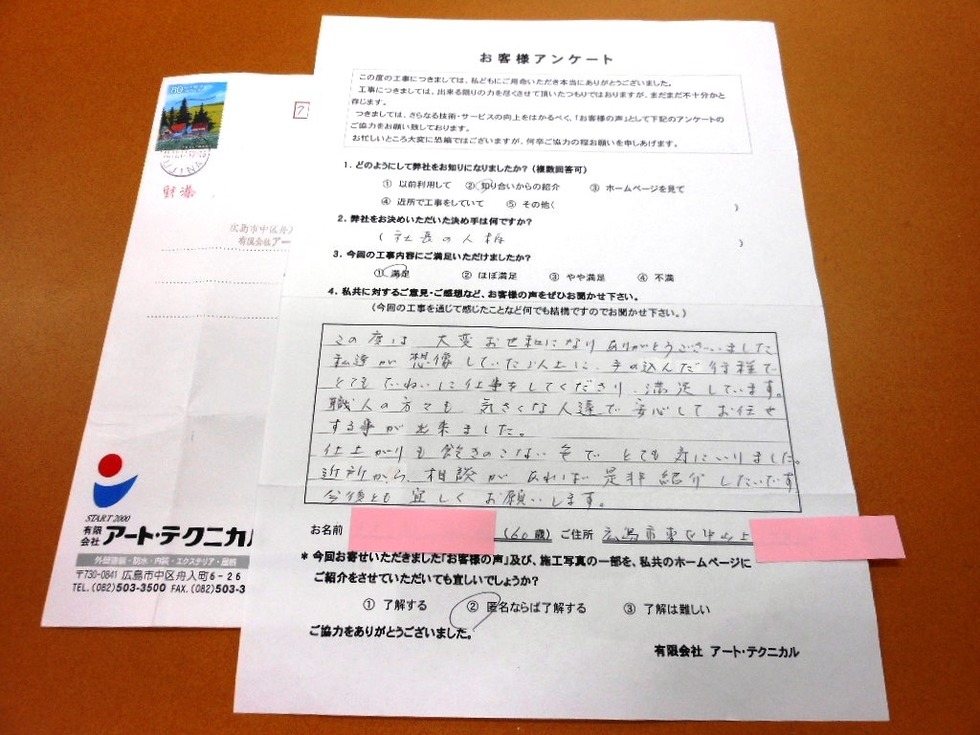 お客様アンケート
この度の工事につきましては、私どもにご用命いただき本当にありがとうございました。
工事につきましては、出来る限りの力を尽くさせて頂いたつもりではおりますが、まだまだ不十分かと
存じます。
つきましては、さらなる技術・サービスの向上をはかるべく、「お客様の声」として下記のアンケートの
ご協力をお願い致しております。
お忙しいところ大変に恐縮ではございますが、何卒ご協力の程お願いを申しあげます。
1．どのようにして弊社をお知りになりましたか？（複数回答可）
① 以前利用して ② 知り合いからの紹介 ③ ホームページを見て
④ 近所で工事をしていて ⑤ その他( )
2．弊社をお決めいただいた決め手は何ですか？
( 社長の人柄 )
3．今回の工事内容にご満足いただけましたか？
① 満足 ② ほぼ満足 ③ やや満足 ④ 不満
4．私共に対するご意見・ご感想など、お客様の声をぜひお聞かせ下さい。
（今回の工事を通じて感じたことなど何でも結構ですのでお聞かせ下さい。）
この度は 大変お世和になりありがとうございました
私達が想像していた以上に、手の込んだ行程で
とてもていねいに仕事をしてくださり、満足しています。
職人の方々も 気さくな人達で安心してお任せ
する事が出来ました。
仕上がりも飽きのこない色でとても気にいりました。
近所から、相談があれば是非紹介したいです
今後とも宜しくお願いします。
お名前 (60歳) ご住所 広島市東区中山上
＊今回お寄せいただきました「お客様の声」及び、施工写真の一部を、私共のホームページに
ご紹介をさせていただいても宜しいでしょうか？
① 了解する ② 匿名ならば了解する ③ 了解は難しい
ご協力をありがとうございました。
有限会社 アート・テクニカル
60
UJINA
7
広島市中区舟
有限会社アー
START 2000
有限会社 アート・テクニカル
外壁塗装・防水・内装・エクステリア・屋根
〒730-0841 広島市中区舟入町6-26
TEL.(082)503-3500 FAX.(082)503-3